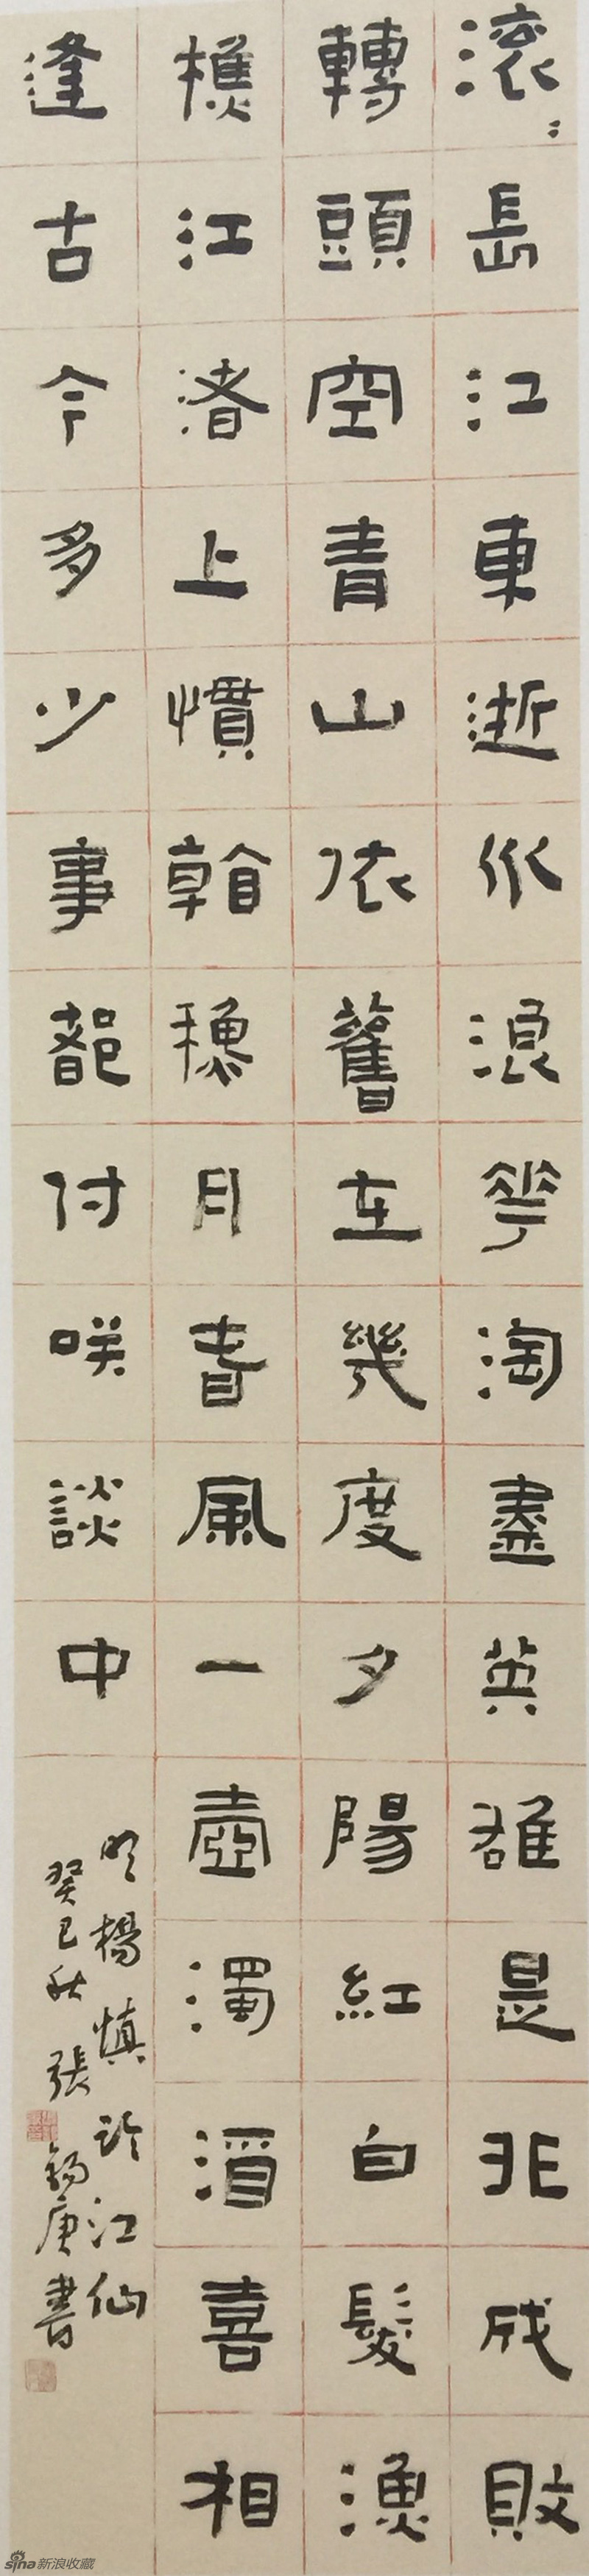 滾〻長江東逝水浪花淘盡英雄是非成敗
轉頭空青山依舊在幾度夕陽紅白髮漁
樵江渚上慣看秋月春風一壺濁酒喜相
逢古今多少事都付咲談中
明楊慎臨江仙
癸巳秋 張錫庚書
sina新浪收藏